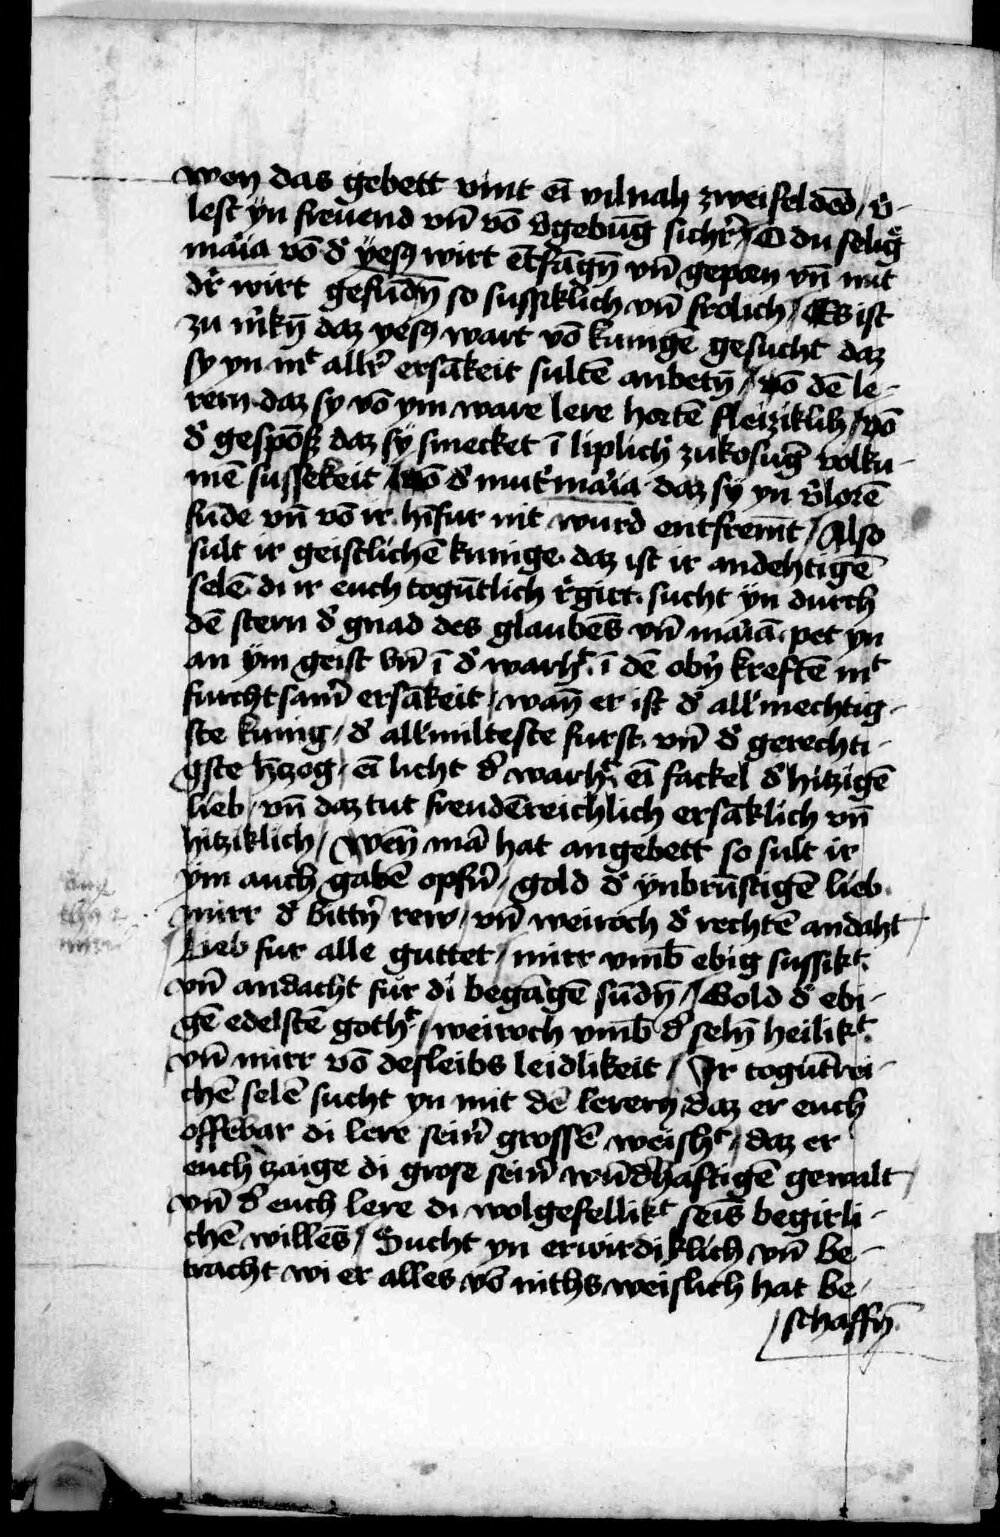 wen das gebett vint eī vil nah zweifeldēd / v̉-
lest yn freuend vn̄ vō v̉gebūg sichr̉ / O du selig̉
maria vō d̉ yesꝰ wirt ētfāgn̄ vn̄ geporn vn̄ mit
dr̉ wirt gefūdn̄ so sussiklich vn̄ frolich / Es ist
zu m̉kn̄ daz yesꝰ wart vō kunigē gesucht daz
sy yn mᷤt allr̉ ersākeit sultē anbetn̄ / vō dē le-
rern daz sy vō ym ware lere hortē fleiziklih / vō
d̉ gespōß daz sy smecket ī liplich̉ zukosug̉ volku-
mē sussekeit / vō d̉ mut̉ maria daz sy yn v̉lorē
fūde vn̄ vō ir hīfur nit wurd entfremt / Also
sult ir geistlichē kunige daz ist ir andehtigē
selē di ir euch togūtlich r̉girt sucht yn durch
dē stern d̉ gnad des glaubēs vn̄ mariā pet yn
an ym geist vn̄ ī d̉ warhᷤt ī dē obn̉ kreftē mᷤt
furchtsam̉ ersākeit / wan̄ er ist d̉ all̉mechtig-
ste kunig / d̉ all̉milteste furst vn̄ d̉ gerechti-
gste h̉tzog / eī licht d̉ warhᷤt eī fackel d̉ hitzigē
lieb / vn̄ daz tut freudēreichlich ersāklich vn̄
hitziklich / Wen̄ mā hat angebett so sult ir
ym auch gabē opfn̉ / gold d̉ ynbrūstigē lieb
mirr d̉ bittn̉ rew / vn̄ weiroch d̉ rechtē andaht
Lieb fur alle guttet / mirr vmb̄ ebig sussikᷤt
vn̄ andacht fur di begāgē sūdn̄ / Gold d̉ ebi-
gē edelstē gothᷤt / weiroch vmb̄ d̉ seln̄ heilikᷤt
vn̄ mirr vō des leibs leidlikeit / Ir togūtrei-
chē selē sucht yn mit dē lerern daz er euch
offēbar di lere sein̉ grossē weishᷤt / daz er
euch tzaige di grose sein̉ wūd̉haftigē gewalt /
vn̄ d̉ euch lere di wolgefellikᷤt seīs begirli-
chē willēs / Sucht yn erwirdiklich vn̄ be-
tracht wi er alles vō nihts weislich hat be-
schaffn̄